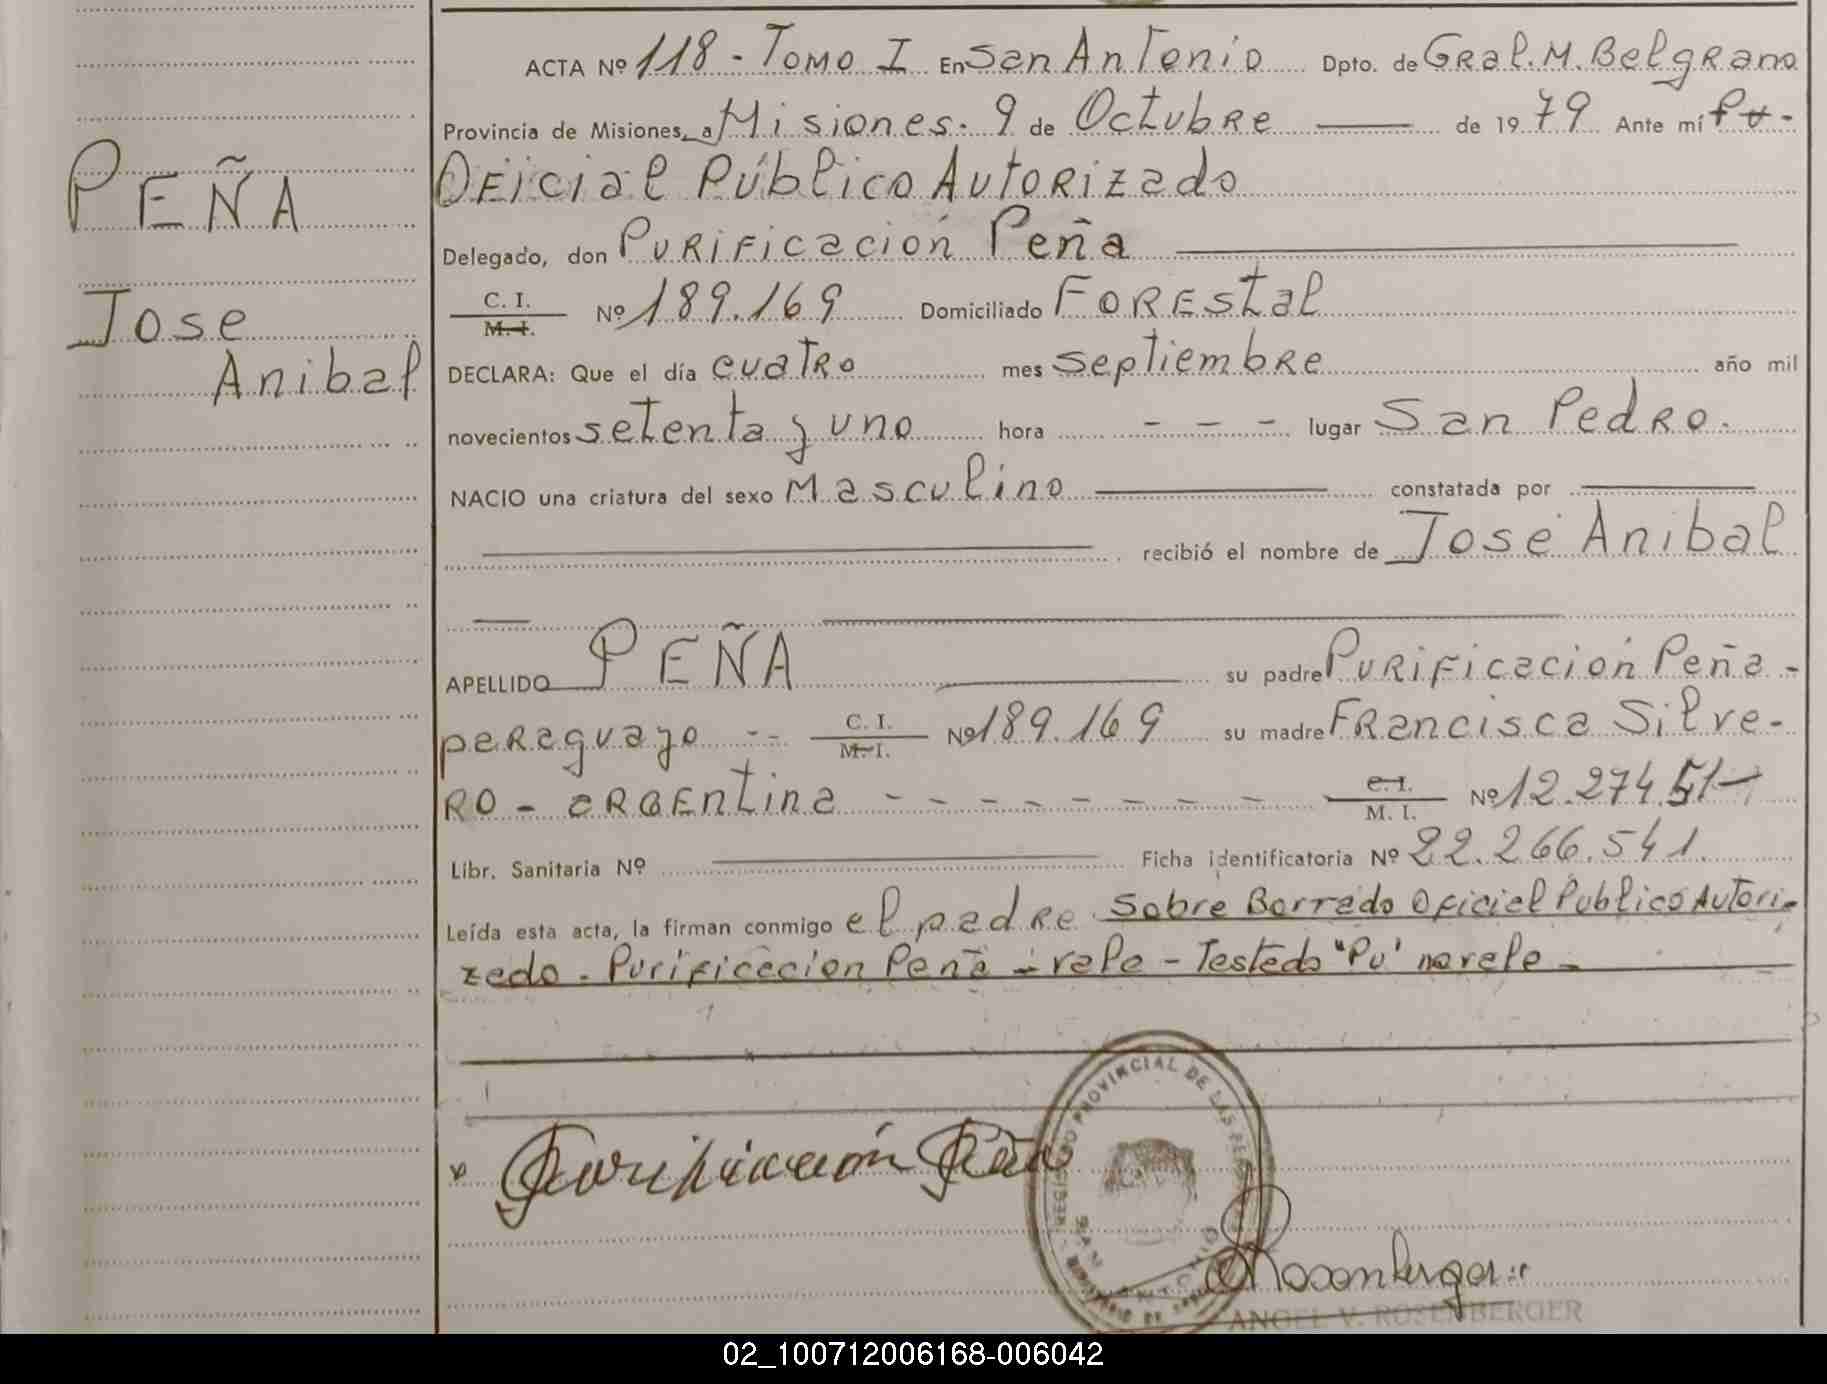 ACTA Nº 118 - Tomo I En San Antonio Dpto. de Gral. M. Belgrano
Provincia de Misiones, a Misiones. 9 de Octubre de 1979 Ante mí Pu-
Oficial Público Autorizado
Delegado, don Purificación Peña
C. I.
M. I. Nº 189.169 Domiciliado Forestal
DECLARA: Que el día cuatro mes septiembre año mil
novecientos setenta y uno hora - - - lugar San Pedro.
NACIO una criatura del sexo Masculino constatada por
recibió el nombre de José Anibal
APELLIDO PEÑA su padre Purificación Peña -
paraguayo -- C. I.
M. I. Nº 189.169 su madre Francisca Silve-
ro - argentina - - - - - - - - C. I.
M. I. Nº 12.274.51-
Libr. Sanitaria Nº Ficha identificatoria Nº 22.266.541.
Leída esta acta, la firman conmigo el padre. Sobre Borrado Oficial Publico Autori-
zado - Purificacion Peña - vale - Testado "Pu" no vale -
PEÑA
Jose
Anibal
Purificación Peña
REGISTRO PROVINCIAL DE LAS PERSONAS
SAN ANTONIO
Rosenberger
ANGEL V. ROSENBERGER
02_100712006168-006042